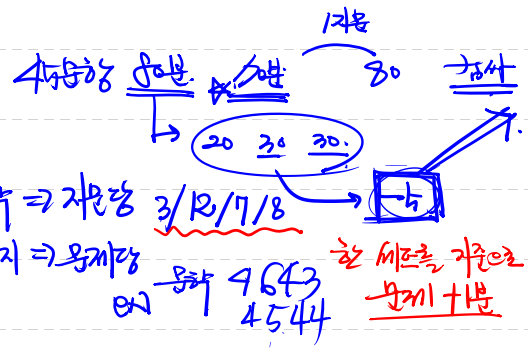 1지문
45문항 80분 70분 80 검사
20 30 30.
⇒ 지문당 3/12/7/8
지 ⇒ 문제당
ex) 문학 4643
4544
한 세트를 기준으로
문제 +1분